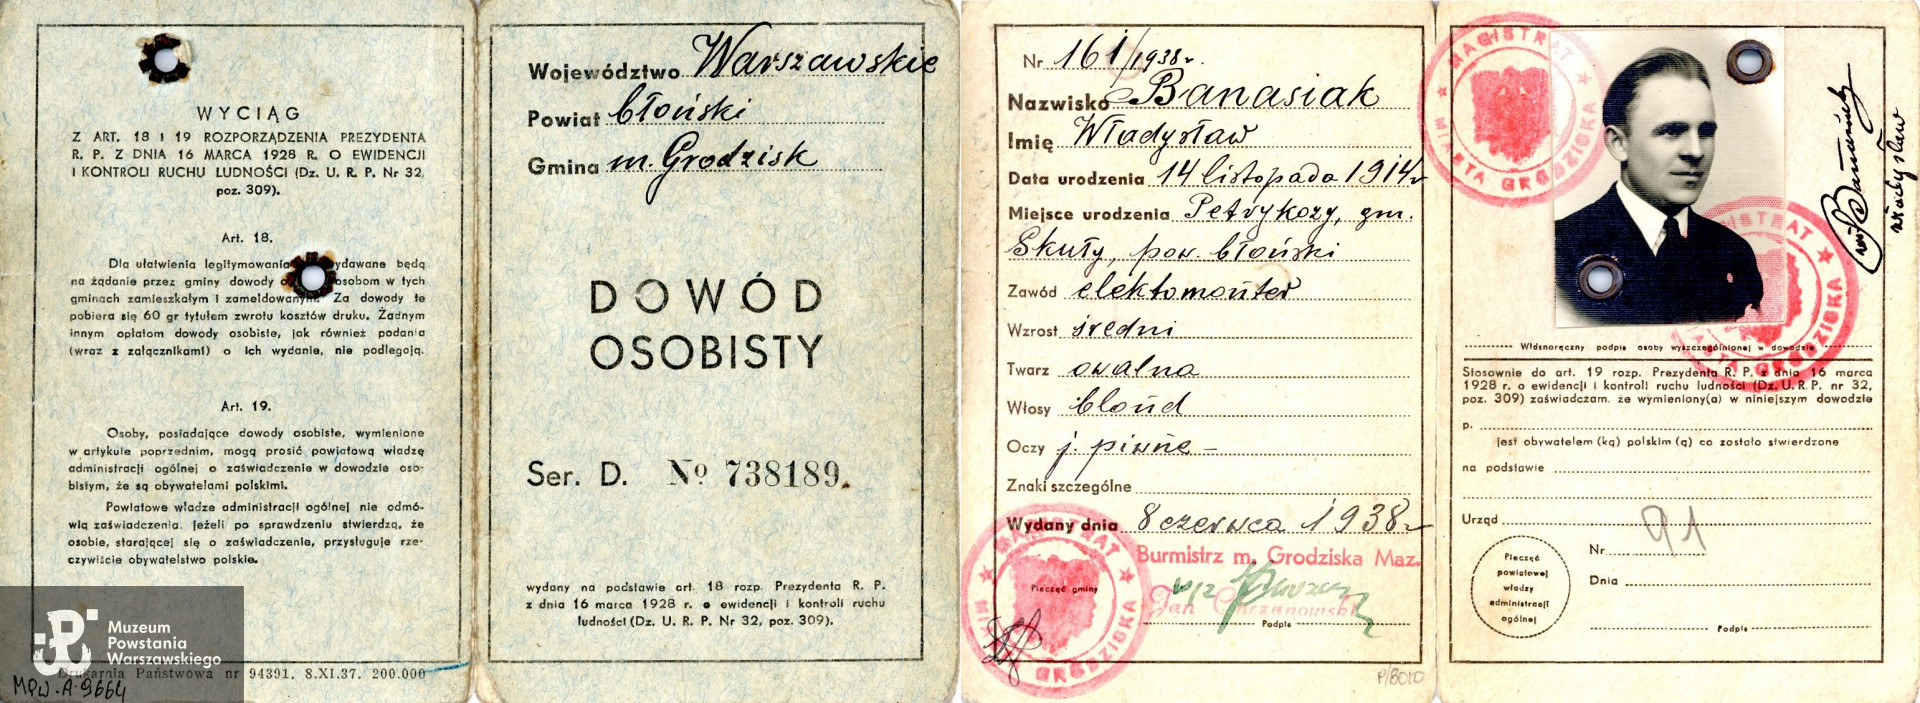 WYCIĄG
Z ART. 18 I 19 ROZPORZĄDZENIA PREZYDENTA
R. P. Z DNIA 16 MARCA 1928 R. O EWIDENCJI
I KONTROLI RUCHU LUDNOŚCI (Dz. U. R. P. Nr 32,
poz. 309).
Art. 18.
Dla ułatwienia legitymowania wydawane będą
na żądanie przez gminy dowody osobom w tych
gminach zamieszkałym i zameldowanym. Za dowody te
pobiera się 60 gr tytułem zwrotu kosztów druku. Żadnym
innym opłatom dowody osobiste, jak również podania
(wraz z załącznikami) o ich wydanie, nie podlegają.
Art. 19.
Osoby, posiadające dowody osobiste, wymienione
w artykule poprzednim, mogą prosić powiatową władzę
administracji ogólnej o zaświadczenie w dowodzie oso-
bistym, że są obywatelami polskimi.
Powiatowe władze administracji ogólnej nie odmó-
wią zaświadczenia, jeżeli po sprawdzeniu stwierdzą, że
osobie, starającej się o zaświadczenie, przysługuje rze-
czywiście obywatelstwo polskie.
Muzeum
Powstania
Warszawskiego
Drukarnia Państwowa nr 94391. 8.XI.37. 200.000
MPW-A-9664
Województwo Warszawskie
Powiat błoński
Gmina m. Grodzisk
DOWÓD
OSOBISTY
Ser. D. № 738189.
wydany na podstawie art. 18 rozp. Prezydenta R. P.
z dnia 16 marca 1928 r. o ewidencji i kontroli ruchu
ludności (Dz. U. R. P. Nr 32, poz. 309).
Nr 161/1938 r.
Nazwisko Banasiak
Imię Władysław
Data urodzenia 14 listopada 1914 r
Miejsce urodzenia Petrykozy, gm.
Skuły, pow. błoński
Zawód elektomonter
Wzrost średni
Twarz owalna
Włosy blond
Oczy j. piwne -
Znaki szczególne
Wydany dnia 8 czerwca 1938 r
Burmistrz m. Grodziska Maz.
Jan Chrzanowski
Pieczęć gminy
Podpis
MAGISTRAT
MIASTA GRODZISKA
P/8010
MAGISTRAT
MIASTA GRODZISKA
MAGISTRAT
MIASTA GRODZISKA
Banasiak
Władysław
Własnoręczny podpis osoby wyszczególnionej w dowodzie
Stosownie do art. 19 rozp. Prezydenta R. P. z dnia 16 marca
1928 r. o ewidencji i kontroli ruchu ludności (Dz. U. R. P. nr 32,
poz. 309) zaświadczam, że wymieniony(a) w niniejszym dowodzie
p.
jest obywatelem (ką) polskim (ą) co zostało stwierdzone
na podstawie
Urząd
91
Nr
Dnia
Pieczęć
powiatowej
władzy
administracji
ogólnej
Podpis